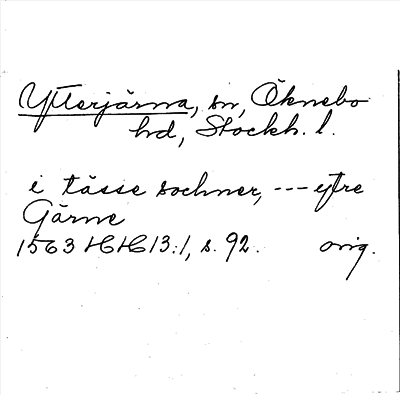 Ytterjärna, sn, Öknebo
hd, Stockh. l.
i tässe sochner, --- ytre
Gärne
1563 HH 13:1, s. 92. orig.